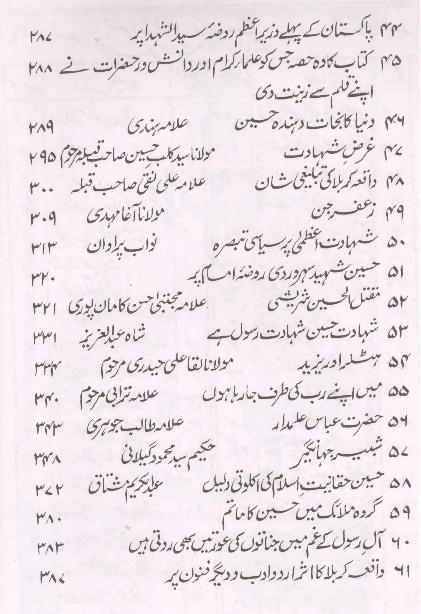 ۴۴ پاکستان کے پہلے وزیر اعظم روضۂ سید الشہدا پر ۲۸۷
۴۵ کتاب کا وہ حصہ جس کو علمار کرام اور دانش ور حضرات نے ۲۸۸
اپنے قلم سے زینت دی
۴۶ دنیا کا نجات دہندہ حسین علامہ ہندی ۲۸۹
۴۷ غرض شہادت مولانا سید کلب حسین صاحب قبلہ مرحوم ۲۹۵
۴۸ واقعہ کربلا کی تبلیغی شان علامہ علی نقی صاحب قبلہ ۳۰۰
۴۹ زعفر جن مولانا آغا مہدی ۳۰۹
۵۰ شہادت اعظمیٰ پر سیاسی تبصرہ نواب پر اوان ۳۱۳
۵۱ حسین شہید سہروردی روضۂ امام پر ۳۲۰
۵۲ مقتل الحسین شریشی علامہ مجتبیٰ حسن کامان پوری ۳۲۱
۵۳ شہادت حسین شہادت رسول ہے شاہ عبد العزیز ۳۳۱
۵۴ ہٹلر اور یزید مولانا لقا علی حیدری مرحوم ۳۳۴
۵۵ میں اپنے رب کی طرف جا رہا ہوں علامہ ترابی مرحوم ۳۴۰
۵۶ حضرت عباس علمدار علامہ طالب جوہری ۳۴۳
۵۷ شبیر جہانگیر حکیم سید محمود گیلانی ۳۴۸
۵۸ حسین حقانیت اسلام کی اکلوتی دلیل عبد الکریم مشتاق ۳۷۲
۵۹ گروہ ملائک میں حسین کا ماتم ۳۸۰
۶۰ آل رسول کے غم میں جناتوں کی عورتیں بھی روتی ہیں ۳۸۳
۶۱ واقعہ کربلا کا اثر اردو ادب و دیگر فنون پر ۳۸۷